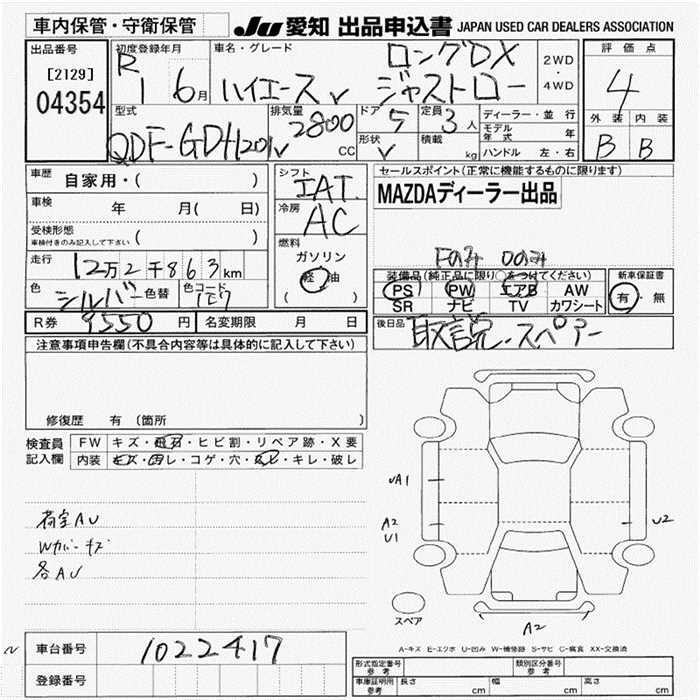 車内保管・守衛保管
JU 愛知 出品申込書 JAPAN USED CAR DEALERS ASSOCIATION
出品番号
[2129]
04354
初度登録年月
R1 6月
車名・グレード
ロングDX
ハイエース ジャストロー
2WD
・
4WD
評価点
4
外装 内装
B B
型式
QDF-GDH201V
排気量
2800
CC
ドア
5
形状
V
定員
3人
積載
kg
ディーラー・並行
モデル年式 年
ハンドル 左・右
車歴 自家用・( )
車検 年 月( 日)
受検形態
車検付きのみ記入して下さい ( )
走行 12万2千863km
色 シルバー 色替
色コード 1E7
シフト
IAT
冷房
AC
燃料
ガソリン
軽油
( )
セールスポイント(正常に機能するものに限ります)
MAZDAディーラー出品
Fのみ Dのみ
装備品(純正品に限り○をつけてください)
PS PW エアB AW
SR ナビ TV カワシート
新車保証書
有・無
R券 9550円
名変期限 月 日
後日品 取説・スペアー
注意事項申告欄(不具合内容等は具体的に記入して下さい)
修復歴 有 (箇所 )
検査員
記入欄
FW キズ・飛石・ヒビ割・リペア跡・X要
内装 キズ・汚レ・コゲ・穴・スレ・キレ・破レ
荷室AU
Wカバーキズ
各AU
UA1
A2
U1
U2
A2
スペア
A-キズ E-エクボ U-凹み W-補修跡 S-サビ C-腐食 XX-交換済
車台番号 1022417
登録番号
形式指定番号
参考
類別区分番号
参考
車庫証明用
参考
長さ cm 幅 cm 高さ cm